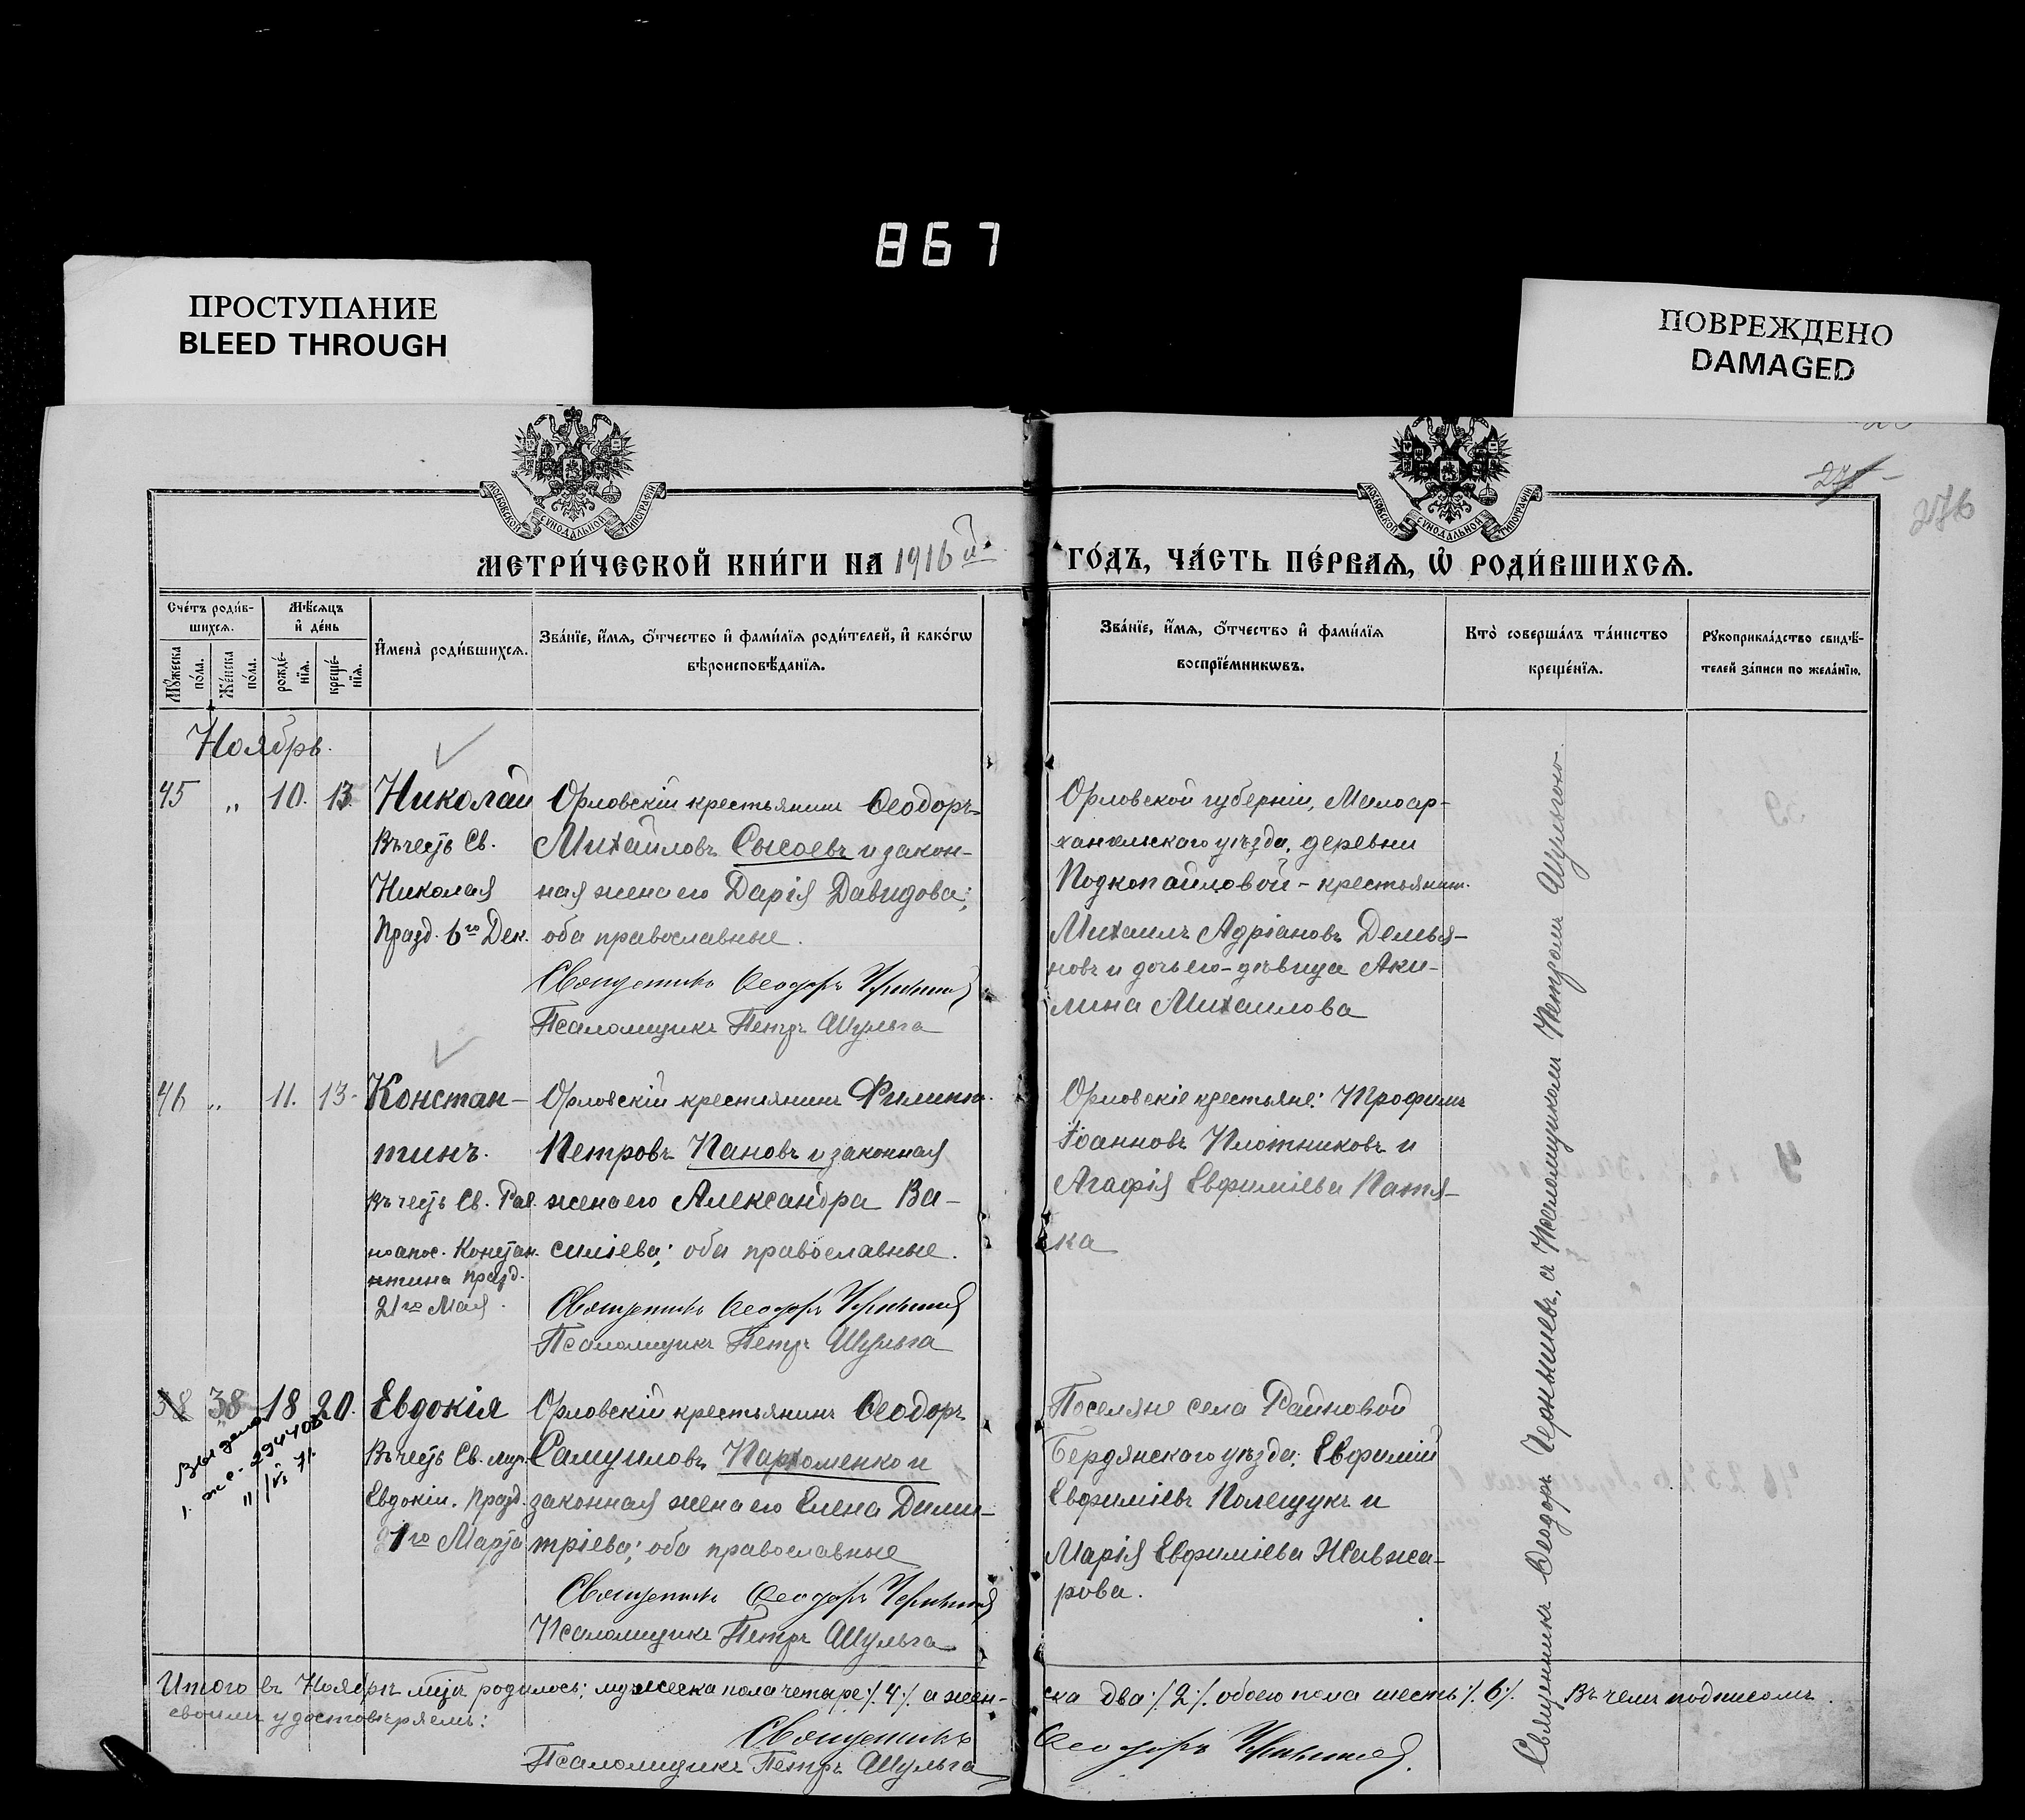 867
ПРОСТУПАНИЕ
BLEED THROUGH
ПОВРЕЖДЕНО
DAMAGED
МОСКОВСКОЙ СѴНОДАЛЬНОЙ ТИПОГРАФІИ
МОСКОВСКОЙ СѴНОДАЛЬНОЙ ТИПОГРАФІИ
276
МЕТРИ́ЧЕСКОЙ КНИ́ГИ НА 1916й
ГО́ДЪ, ЧА́СТЬ ПЕ́РВАѦ, Ѡ҆ РОДИ́ВШИХСѦ.
Сче́тъ роди́в-
шихсѧ.
Мꙋ́жеска
по́ла.
Же́нска
по́ла.
Мѣ́сѧцъ
и҆ де́нь
рожде́-
нїѧ.
креще́-
нїѧ.
И҆мена̀ роди́вшихсѧ.
Зва́нїе, и҆́мѧ, ѻ҆́тчество и҆ фами́лїѧ роди́телей, и҆ како́гѡ
вѣроисповѣ́данїѧ.
Зва́нїе, и҆́мѧ, ѻ҆́тчество и҆ фами́лїѧ
воспрїе́мникѡвъ.
Кто̀ соверша́лъ та́инство
креще́нїѧ.
Рꙋкоприкла́дство свидѣ́-
телей за́писи по жела́нїю.
Ноябрь.
45 „ 10. 13
Николай
Въ честь Св.
Николая
Празд. 6го Дек.
Орловскій крестьянинъ Ѳеодоръ
Михаиловъ Сысоевъ и закон-
ная жена его Дарія Давидова;
оба православные.
Священникъ Ѳеодоръ Чернышевъ
Псаломщикъ Петръ Шульга
Орловской губерніи, Малоар-
хангельскаго уѣзда, деревни
Подкопайловой - крестьянин.
Михаилъ Адріановъ Демья-
новъ и дочь его - дѣвица Аки-
лина Михаилова
46 „ 11. 13.
Констан-
тинъ.
Въ честь Св. Рав-
ноапос. Констан-
нтина празд.
21го Мая.
Орловскій крестьянинъ Филиппъ
Петровъ Пановъ и законная
жена его Александра Ва-
силіева; оба православные.
Священникъ Ѳеодоръ Чернышевъ
Псаломщикъ Петръ Шульга
Орловскіе крестьяне: Трофимъ
Іоанновъ Плотниковъ и
Агафія Евфиміева Патя-
ка
38 38 18 20.
Выдано
Евдокія
Въ честь Св. муч.
Евдокіи. Празд.
1го Марта
Орловскій крестьянинъ Ѳеодоръ
Самуиловъ Пархоменко и
законная жена его Елена Дими-
тріева; оба православные
Священникъ Ѳеодоръ Чернышевъ
Псаломщикъ Петръ Шульга
Поселяне села Райновой
Бердянскаго уѣзда: Евфимій
Евфиміевъ Полещукъ и
Марія Евфиміева Жавжа-
рова.
Священникъ Ѳеодоръ Чернышевъ, съ Псаломщикомъ Петромъ Шульгою.
Итого въ Ноябрѣ мцѣ родилось: мужеска пола четыре /.4./. а жен-
ска два /.2./. обоего пола шесть /.6./. Въ чемъ подписомъ
своимъ удостовѣряемъ:
Священникъ Ѳеодоръ Чернышевъ.
Псаломщикъ Петръ Шульга